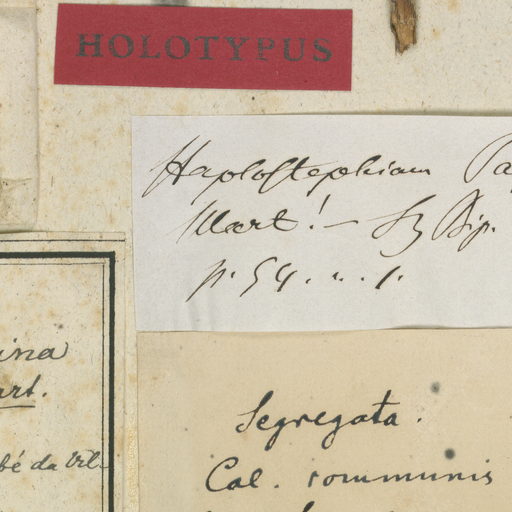 HOLOTYPUS
Haplostephium Pa
Mart! — Sz Bip.
p. 54. n. 1.
ina
art.
bé da Vil
Segregata.
Cal. communis